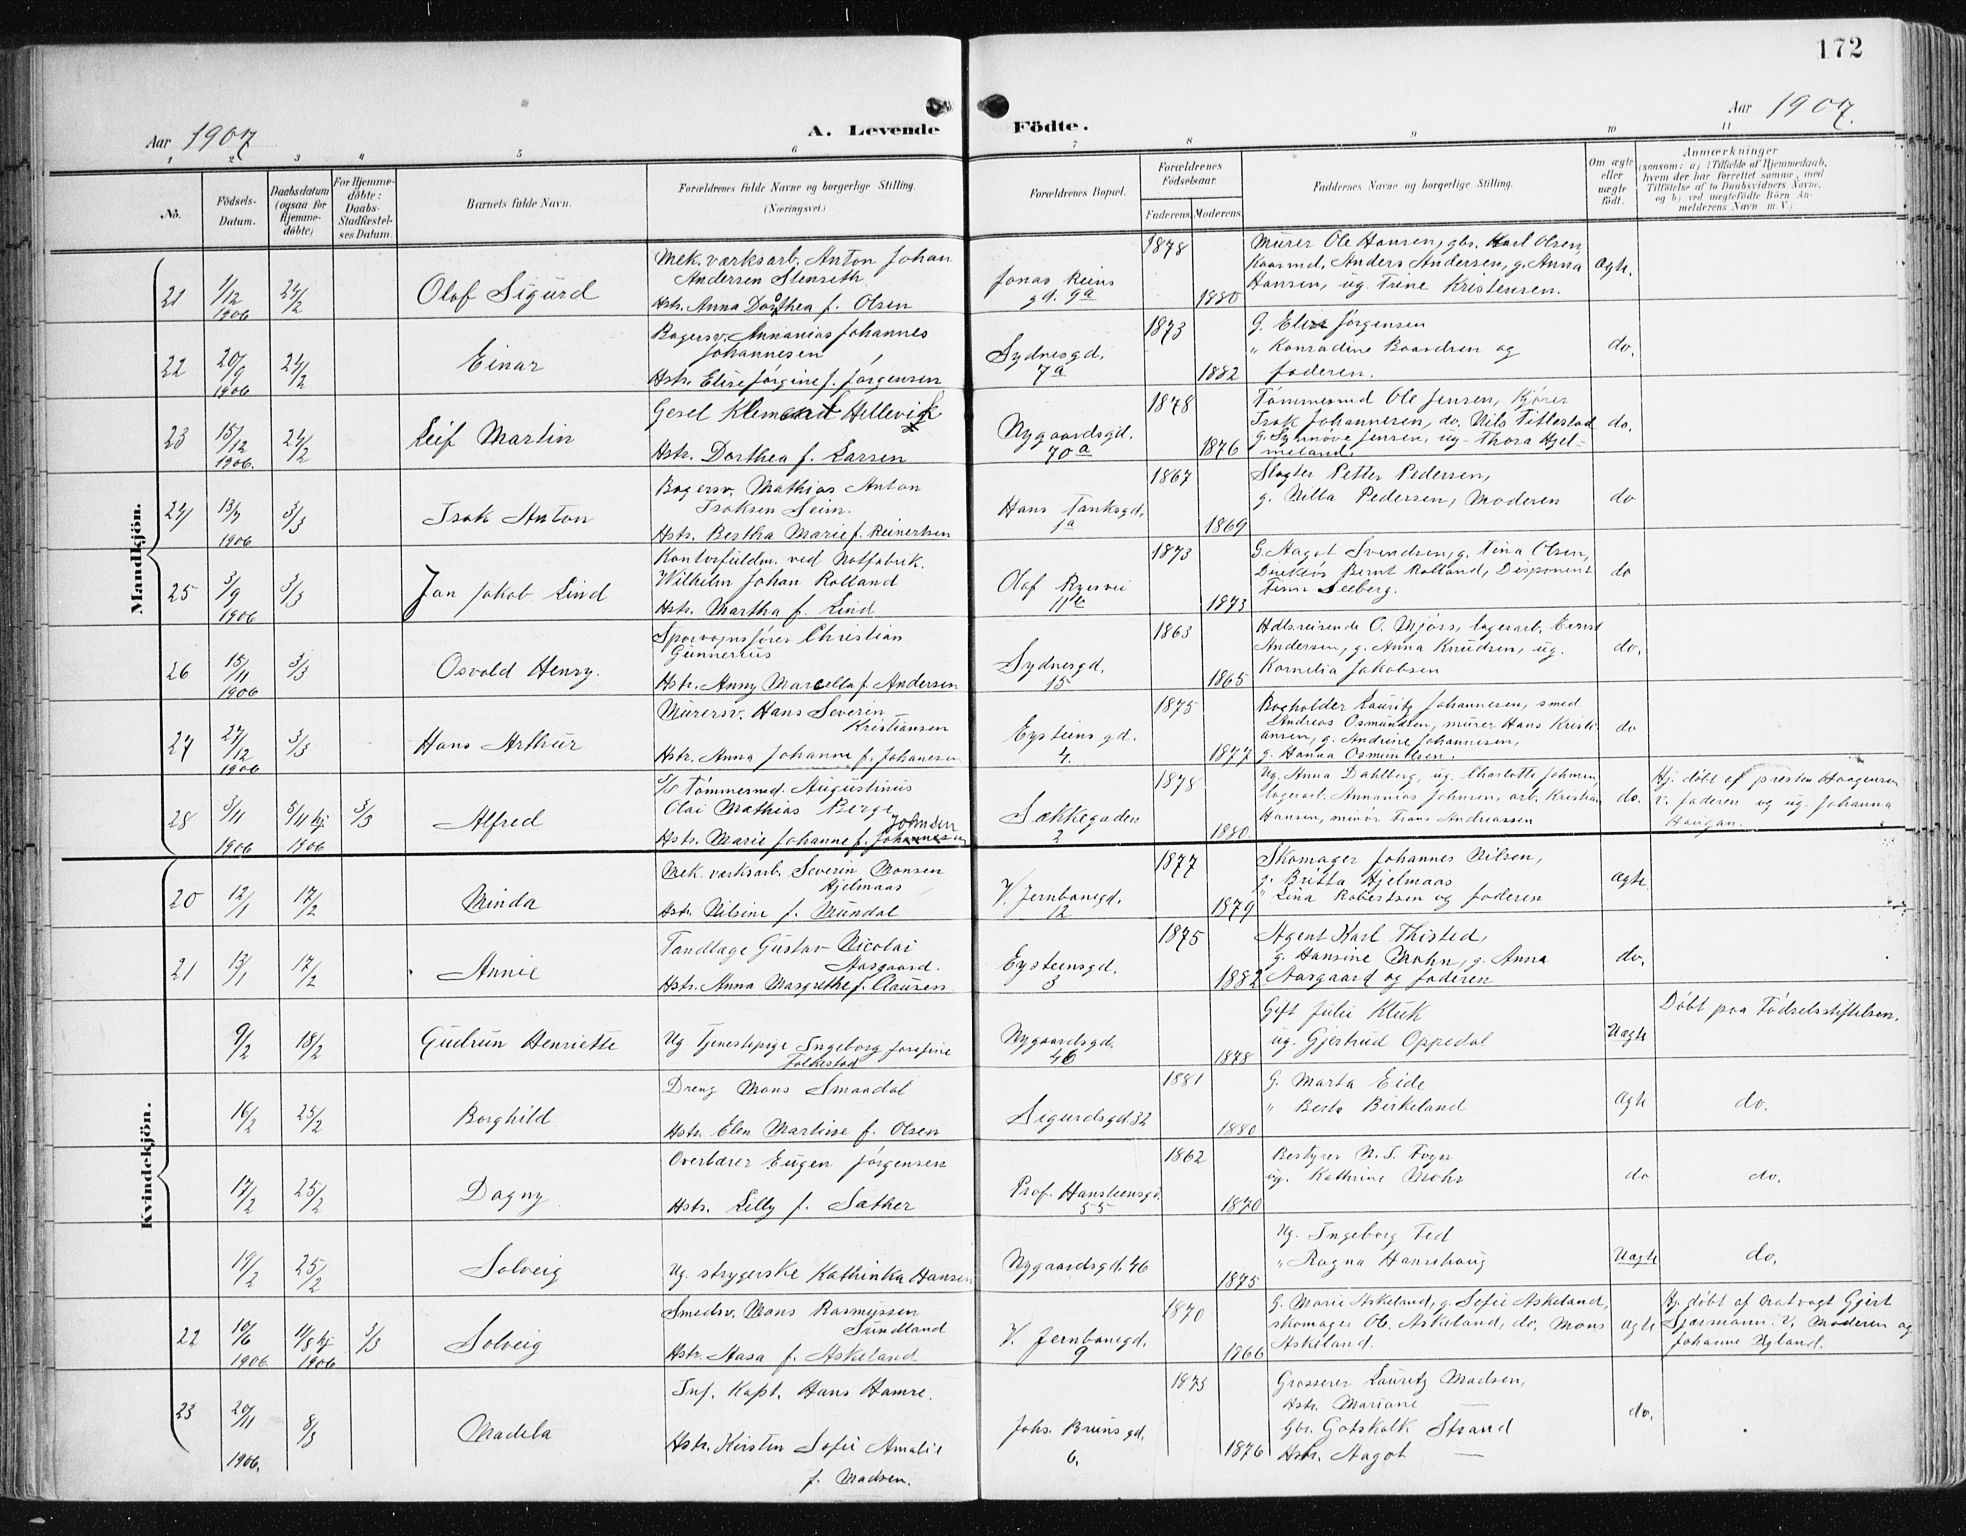 172
Aar 1907
A. Levende Födte.
Aar 1907.
1 2 3 4 5 6 7 8 9 10 11
No.
Födsels-
Datum.
Daabsdatum
(ogsaa for
Hjemme-
döbte)
For Hjemme-
döbte:
Daabs-
Stadfæstel-
ses Datum.
Barnets fulde Navn.
Forældrenes fulde Navne og borgerlige Stilling.
(Næringsvei.)
Forældrenes Bopæl.
Forældrenes
Födselsaar.
Faderens. Moderens.
Faddernes Navne og borgerlige Stilling.
Om ægte
eller
uægte
födt.
Anmærkninger
(saasom: a) i Tilfælde af Hjemmedaab,
hvem der har forrettet samme, med
Tilföielse af to Daabsvidners Navne,
og b) ved uægtefödte Börn An-
melderens Navn m. V.)
Mandkjön.
21
1/12
1906
24/2
Olaf Sigurd
Mek. værksarb. Anton Johan
Andersen Stenseth
Hstr. Anna Dorthea f. Olsen
Jonas Reins
gd. 9a
1878
1880
Murer Ole Hansen, gbr. Karl Olsen
Kaarmd. Anders Andersen, g. Anna
Hansen, ug Trine Kristensen.
Ægte.
22
20/9
1906
24/2
Einar
Bagersv. Annanias Johannes
Johannesen
Hstr. Elise Jörgine f. Jörgensen
Sydnesgd.
7a
1873
1882
G. Elise Jörgensen
" Konradine Baardsen og
faderen.
do.
23
15/12
1906.
24/2
Leif Martin
Gesel Klement Hillevik
Hstr. Dorthea f. Larsen
Nygaardsgd.
70a
1878
1876
Tömmermd Ole Jensen, Kjörer
Isak Johannesen, do. Nils Tittestad
g. Synnöve Jensen, ug. Thora Hjel-
meland.
do.
24
13/7
1906
3/3
Isak Anton
Bagersv. Mathias Anton
Isaksen Seim.
Hstr. Bertha Marie f. Reinertsen
Hans Tanksgd.
1a
1867
1869
Slagter Petter Pedersen,
g. Nilla Pedersen, Moderen
do
25
3/9
1906
3/3
Jan Jakob Lind
Kontorfuldm. ved Notfabrik.
Wilhelm Johan Rolland
Hstr. Martha f. Lind
Olaf Ryesvei
11b
1873
1873
G. Aagot Svendsen, g. Tina Olsen,
Direktör Bernt Rolland, Disponent
Finn Seeberg.
do
26
15/11
1906
3/3
Osvald Henry.
Sporvognsförer Christian
Gunnerius
Hstr. Anny Marcella f. Andersen
Sydnesgd.
15
1863
1865
Hdlsreisende O. Mjøss, lagerarb. Ernst
Andersen, g. Anna Knudsen, ug.
Kornelia Jakobsen
do.
27
27/12
1906
3/3
Hans Arthur
Murersv. Hans Severin
Kristiansen
Hstr. Anna Johanne f. Johanesen
Eysteins gd.
4.
1875
1877
Bogholder Lauritz Johannesen, smed
Andreas Osmundsen, murer Hans Kristi-
ansen, g. Andrine Johannesen,
g. Hanna Osmundsen.
do
28
3/11
1906
5/11 hj
1906
3/3
Alfred
Tömmermd. Augustinus
Olai Mathias Berge
Johnsen
Hstr. Marie Johanne f. Johannesen
Sækkegaden
2
1878
1880
Ug. Anna Dahlberg, ug. Charlotte Johnsen
lagerarb. Annanias Johnsen, arb. Kristian
Hansen, minör Frans Andreassen
do.
Hj. döbt af presten Haagensen
v. faderen og ug. Johanna
Haugan.
Kvindekjön.
20
12/1
17/2
Minda
Mek. værksarb. Severin Monsen
Hjelmaas
Hstr. Nilsine f. Mundal
V. Jernbanegd.
12
1877
1879
Skomager Johannes Nilsen,
g. Britta Hjelmaas
" Lina Robertsen og faderen
Ægte
21
13/1
17/2
Annie
Tandlæge Gustav Nicolai
Aasgaard.
Hstr. Anna Margrethe f. Clausen.
Eysteensgd.
3
1875
1882
Agent Karl Thisted,
g. Hansine Mohn, g. Anna
Aasgaard og faderen
do.
9/2
18/2
Gudrun Henriette
Ug Tjenestepige Ingeborg Josefine
Folkestad
Nygaardsgd.
46
1878
Gift Julie Kluk
ug. Gjertrud Oppedal
Uægte
Döbt paa Födselsstiftelsen.
16/2
25/2
Borghild
Dreng Mons Smaadal
Hstr. Elen Martine f. Olsen
Sigurdsgd. 32
1881
1880
G. Marta Eide
" Berta Birkeland
Ægte
do.
17/2
25/2
Dagny
Overlærer Eugen Jörgensen
Hstr. Lilly f. Sæther
Prof. Hansteensgd.
55
1862
1870
Bestyrer N. S. Fogn
ug. Kathrine Mohr
do
do.
19/2
25/2
Solveig
Ug. strygerske Kathinka Hansen
Nygaardsgd. 46
1875
Ug. Ingeborg Fed
" Ragna Hansehaug
Uægte
do.
22
10/6
1906.
11/8 hj
1906
3/3
Solveig
Smedsv. Mons Rasmussen
Sundland
Hstr. Aasa f. Askeland
V. Jernbanegd.
9
1870
1866
G. Marie Askeland, g. Sofie Askeland,
skomager Ol. Askeland, do. Mons
Askeland.
Ægte
Hj. döbt af natvagt Gjert
Sjursmann. v. Moderen og
Johanne Nyland.
23
20/11
1906.
8/3
Madela
Inf. Kapt. Hans Hamre.
Hstr. Kirsten Sofie Amalie
f. Madsen.
Johs. Bruns gd.
6.
1873
1876
Grosserer Lauritz Madsen,
Hstr. Mariane —
Gbr. Gotskalk Strand
Hstr. Aagot —
do.